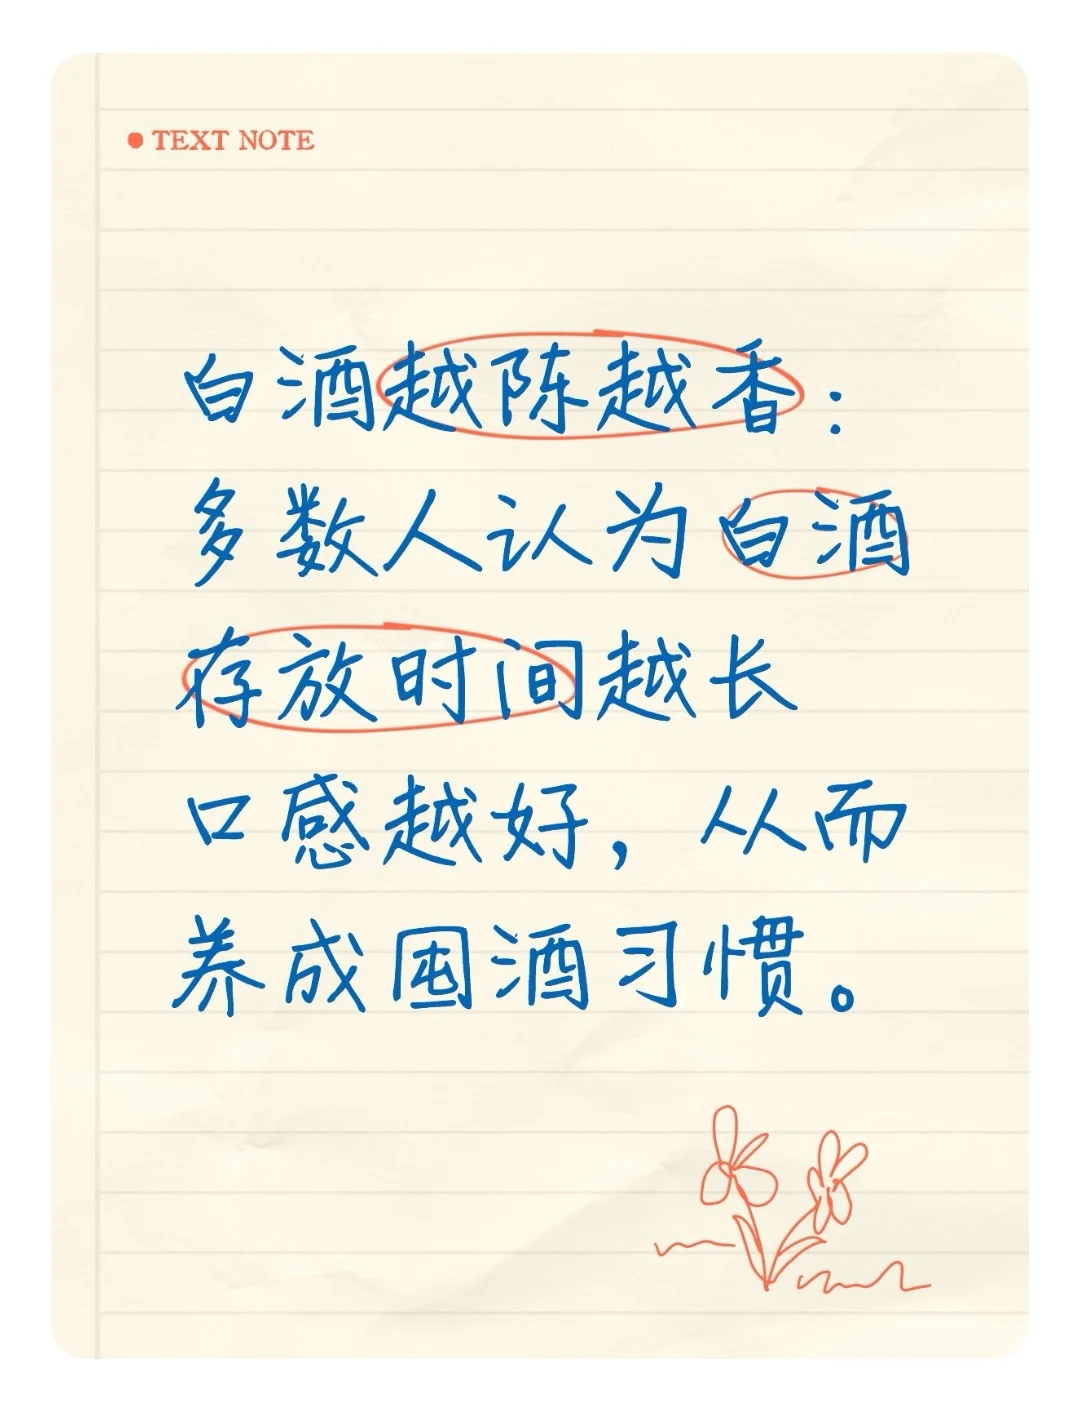 TEXT NOTE
白酒越陈越香：
多数人认为白酒
存放时间越长
口感越好，从而
养成囤酒习惯。